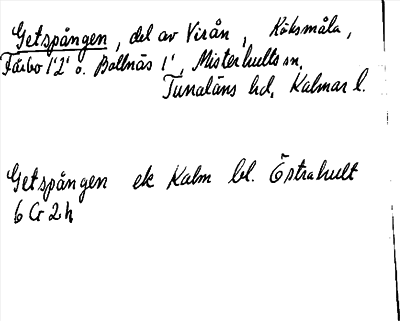 Getspången, del av Virån, Röksmåla,
Fårbo 1'2' o. Bollnäs 1', Misterhults sn.
Tunaläns hd, Kalmar l.
Getspången ek Kalm bl. Östrahult
6 G 2 h